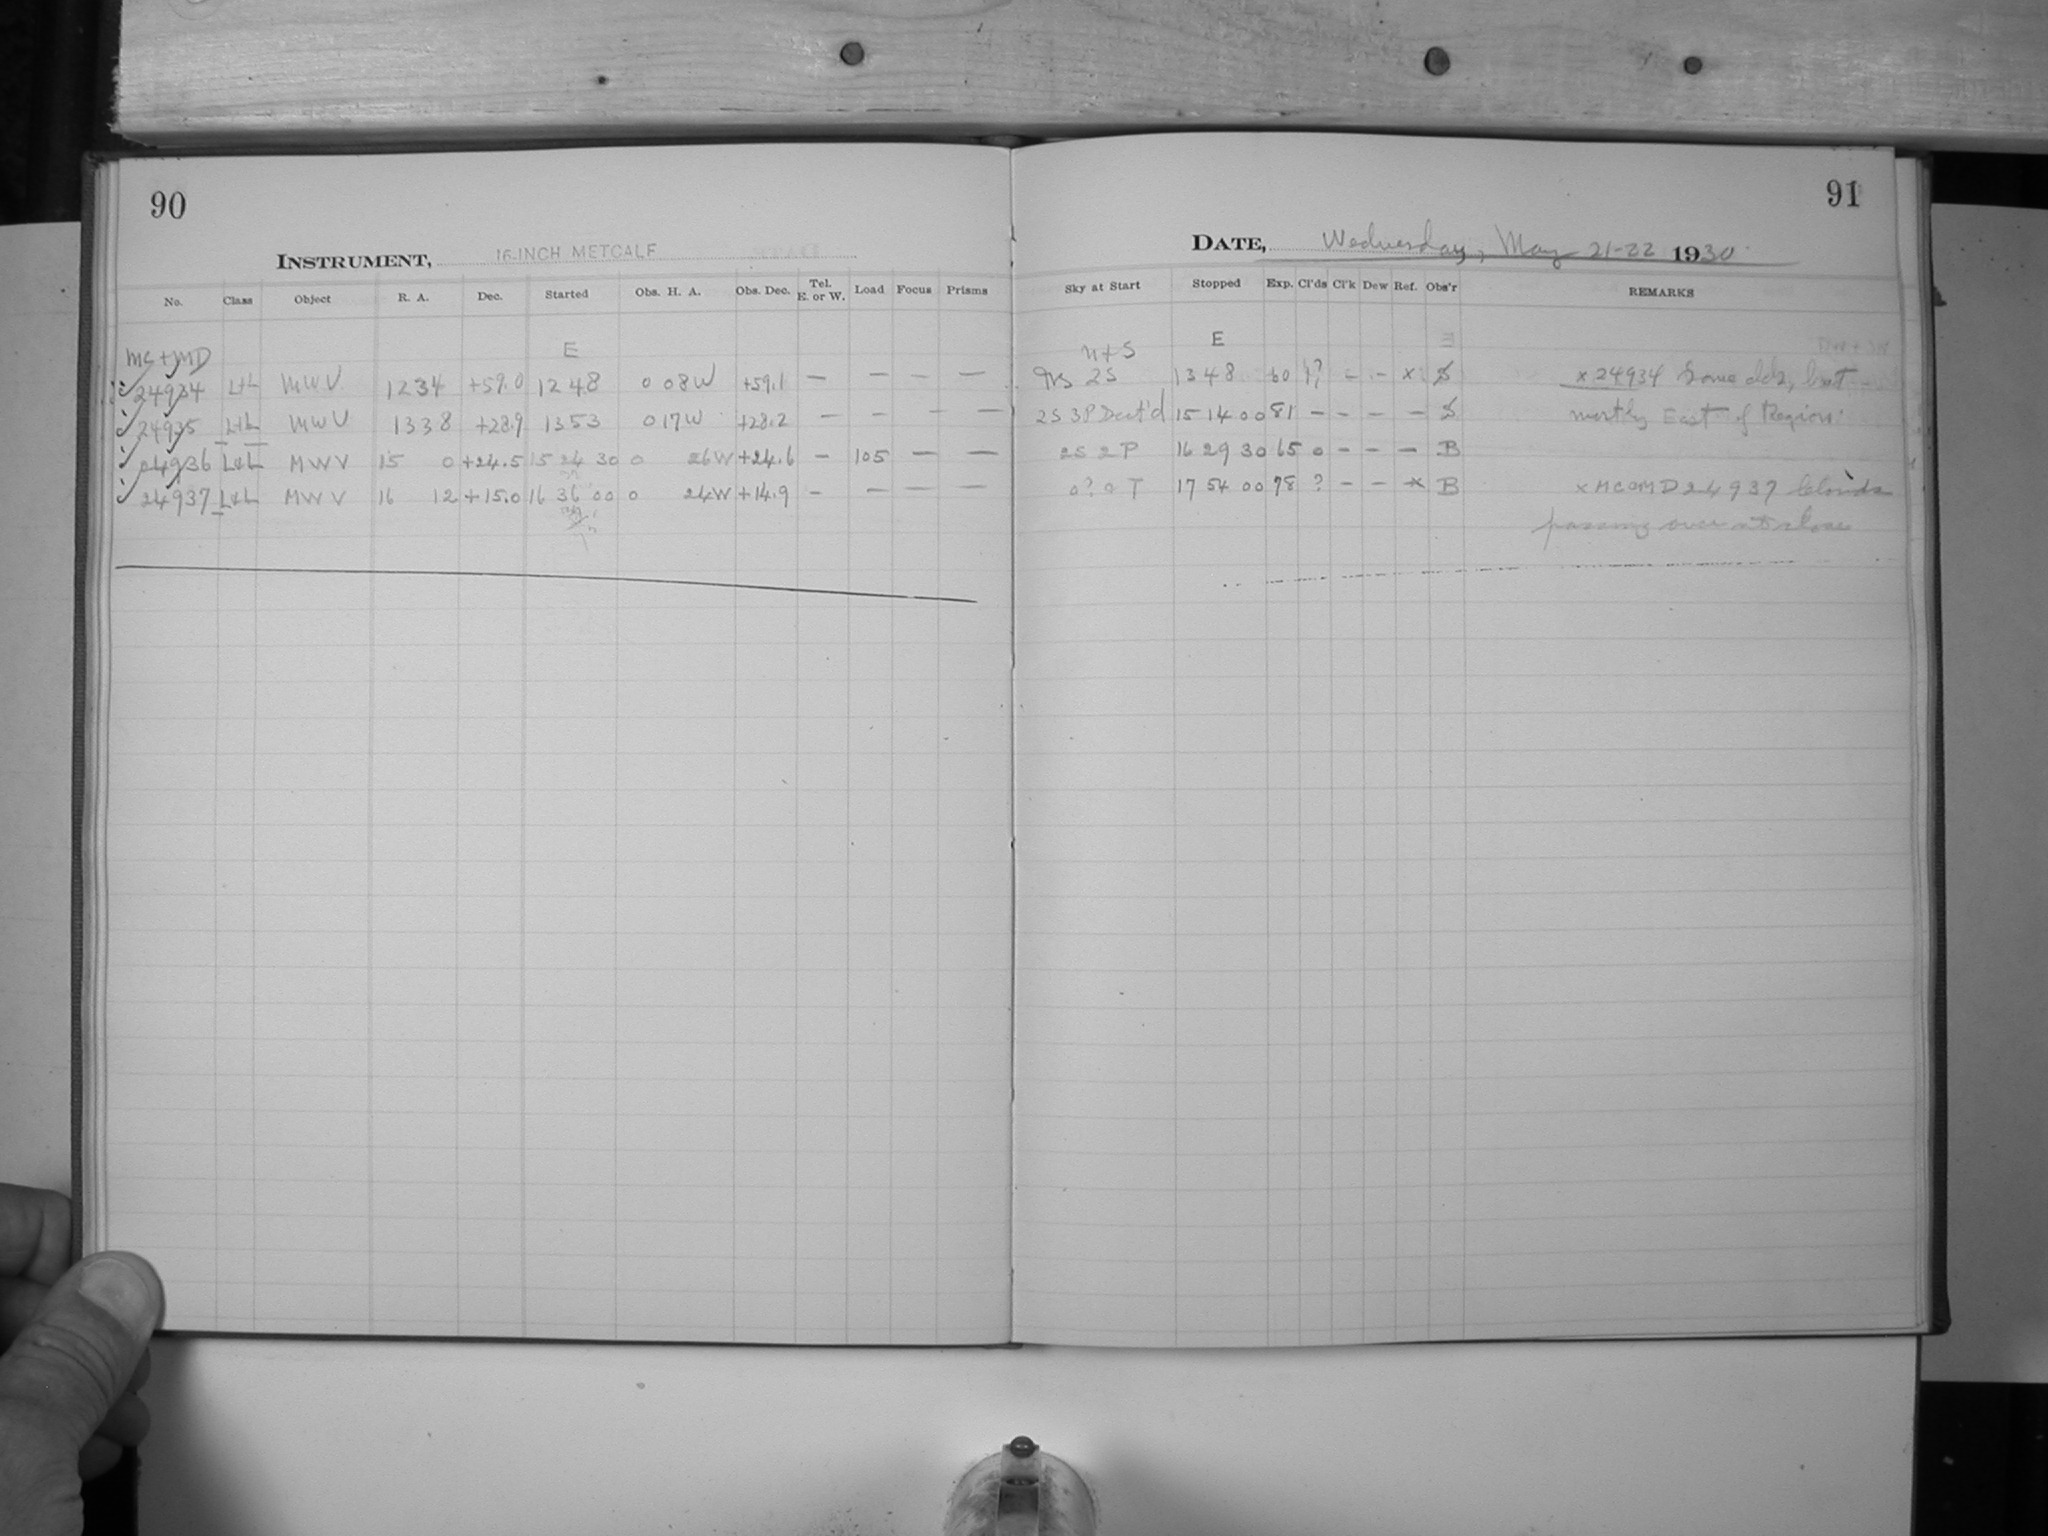 90
INSTRUMENT, 16-INCH METCALF
No. Class Object R. A. Dec. Started Obs. H. A. Obs. Dec. Tel. E. or W. Load Focus Prisms
MC + MD E
24934 L+L MWV 12 34 +59.0 12 48 0 08 W +59.1 — — — —
24935 L+L MWV 13 38 +28.9 13 53 0 17 W +28.2 — — — —
24936 L+L MWV 15 0 +24.5 15 24 30 0 26 W +24.6 — 105 — —
24937 L+L MWV 16 12 +15.0 16 36 00 0 24 W +14.9 — — — —
91
DATE, Wednesday, May 21-22 1930
Sky at Start Stopped Exp. Cl'ds Cl'k Dew Ref. Obs'r REMARKS
E
2S 13 48 60 ? - - x S x 24934 Some clds, but
2S 3P 15 14 00 81 - - - - S mostly East of Region
2S 2P 16 29 30 65 0 - - - B
0? 0 T 17 54 00 78 ? - - x B x MC&MD 24937 Clouds
passing over at close